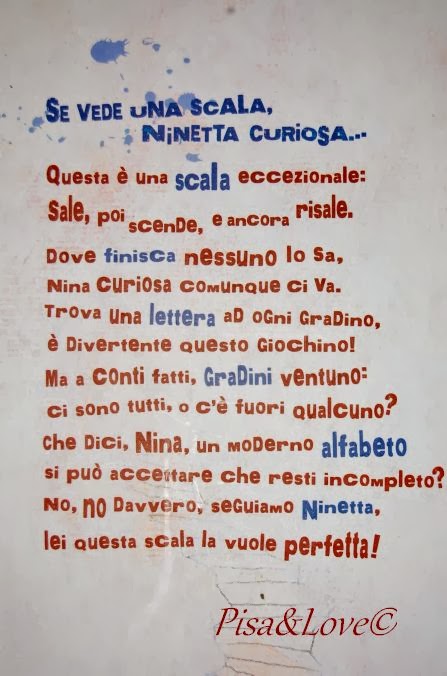 Se vede una scala,
Ninetta curiosa...
Questa è una scala eccezionale:
Sale, poi scende, e ancora risale.
Dove finisca nessuno lo sa,
Nina curiosa comunque ci va.
Trova una lettera ad ogni gradino,
è divertente questo giochino!
Ma a conti fatti, gradini ventuno:
ci sono tutti, o c'è fuori qualcuno?
Che dici, Nina, un moderno alfabeto
si può accettare che resti incompleto?
No, no davvero, seguiamo Ninetta,
lei questa scala la vuole perfetta!
Pisa&Love©